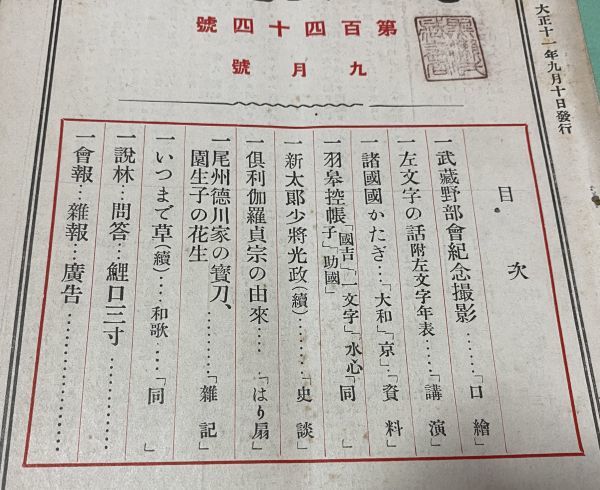 大正十一年九月十日發行
第百四十四號
九月號
目次
一武藏野部會紀念撮影………「口繪」
一左文字の話附左文字年表……「講演」
一諸國國かたぎ…「大和」「京」…「資料」
一羽皋控帳「國吉」「一文字」「水心子」「助國」「同」
一新太郞少將光政(續)………「史談」
一俱利伽羅貞宗の由來……「はり扇」
一尾州德川家の寶刀、
園生子の花生………「雜記」
一いつまで草(續)……和歌……「同」
一說林…問答…鯉口三寸…………
一會報…雜報…廣告…………